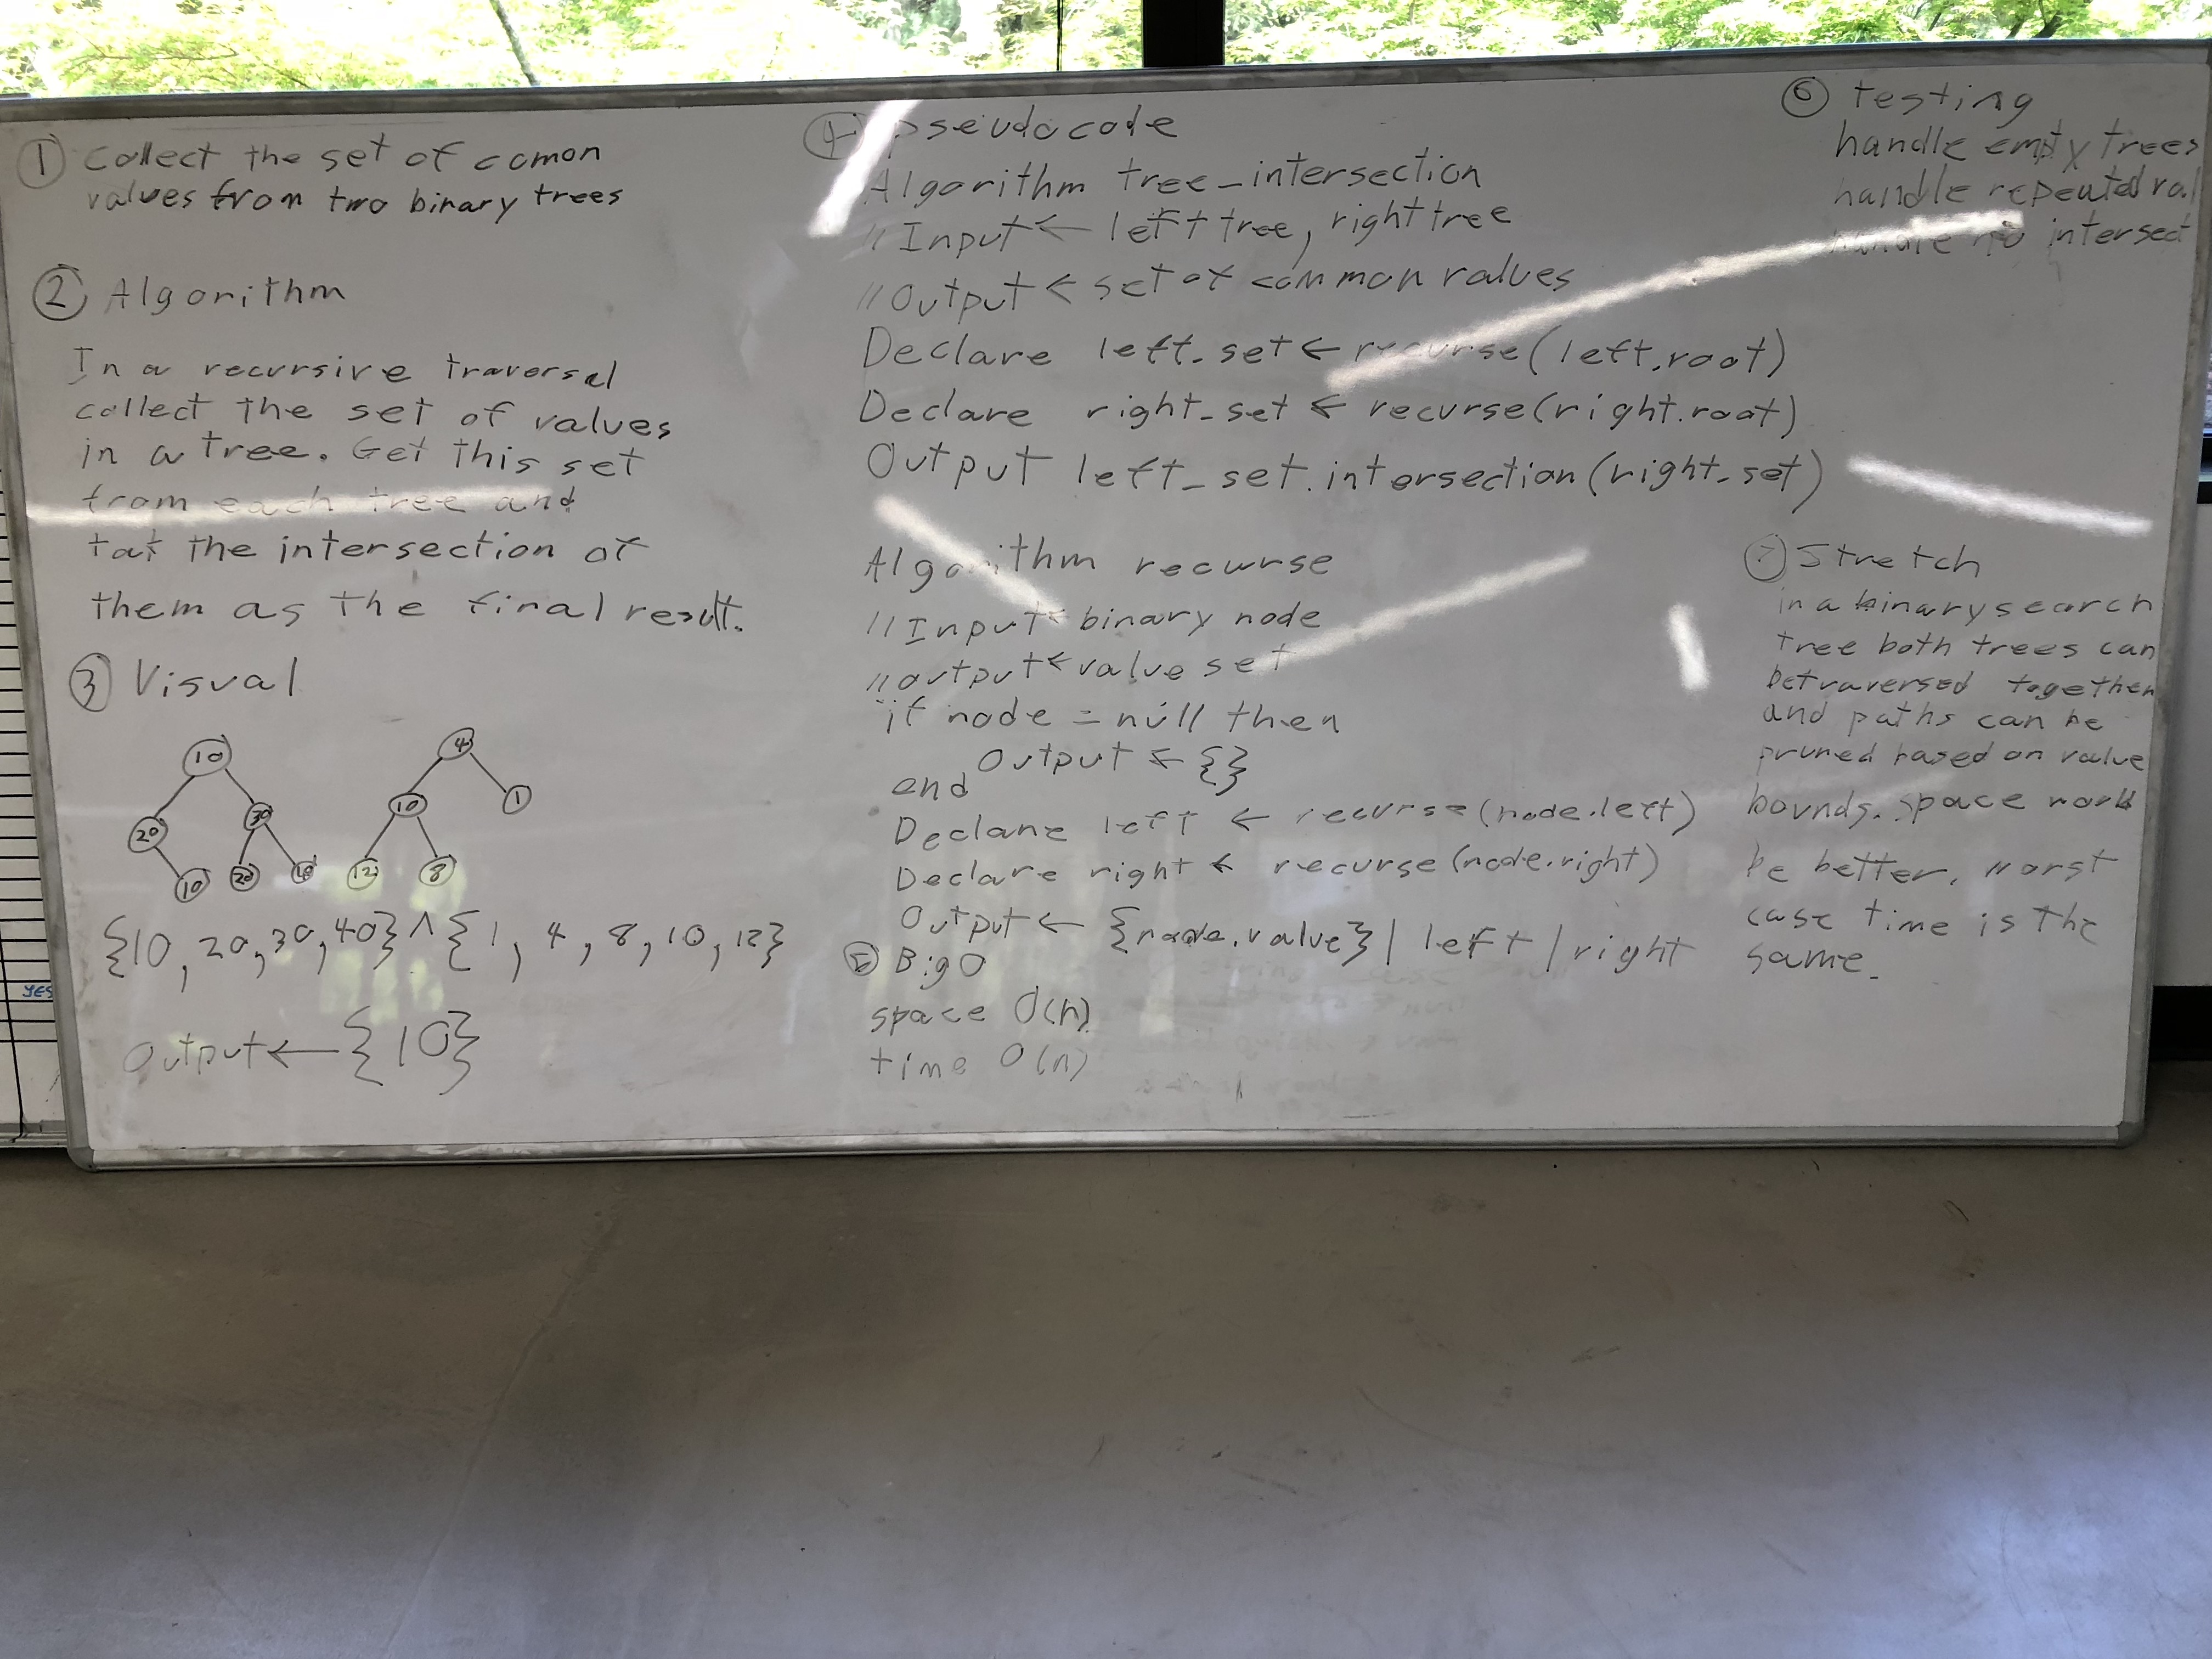 ① Collect the set of comon
values from two binary trees
② Algorithm
In a recursive traversal
collect the set of values
in a tree. Get this set
from each tree and
tat the intersection of
them as the final result.
③ Visual
10
20 30
10 20 40
4
10 1
12 8
{10, 20, 30, 40} ∧ { 1, 4, 8, 10, 12}
Output ← {10}
④ pseudocode
Algorithm tree_intersection
// Input ← left tree, right tree
// Output ← set of common values
Declare left_set ← recurse(left.root)
Declare right_set ← recurse(right.root)
Output left_set.intersection(right_set)
Algorithm recurse
// Input ← binary node
// output ← value set
if node = null then
Output ← {}
end
Declare left ← recurse(node.left)
Declare right ← recurse(node.right)
Output ← {node.value} | left | right
⑤ Big O
space O(n)
time O(n)
⑥ testing
handle empty trees
handle repeated val
handle no intersect
⑦ Stretch
in a binary search
tree both trees can
be traversed together
and paths can be
pruned based on value
bounds. space
be better, worst
case time is the
same.
YES